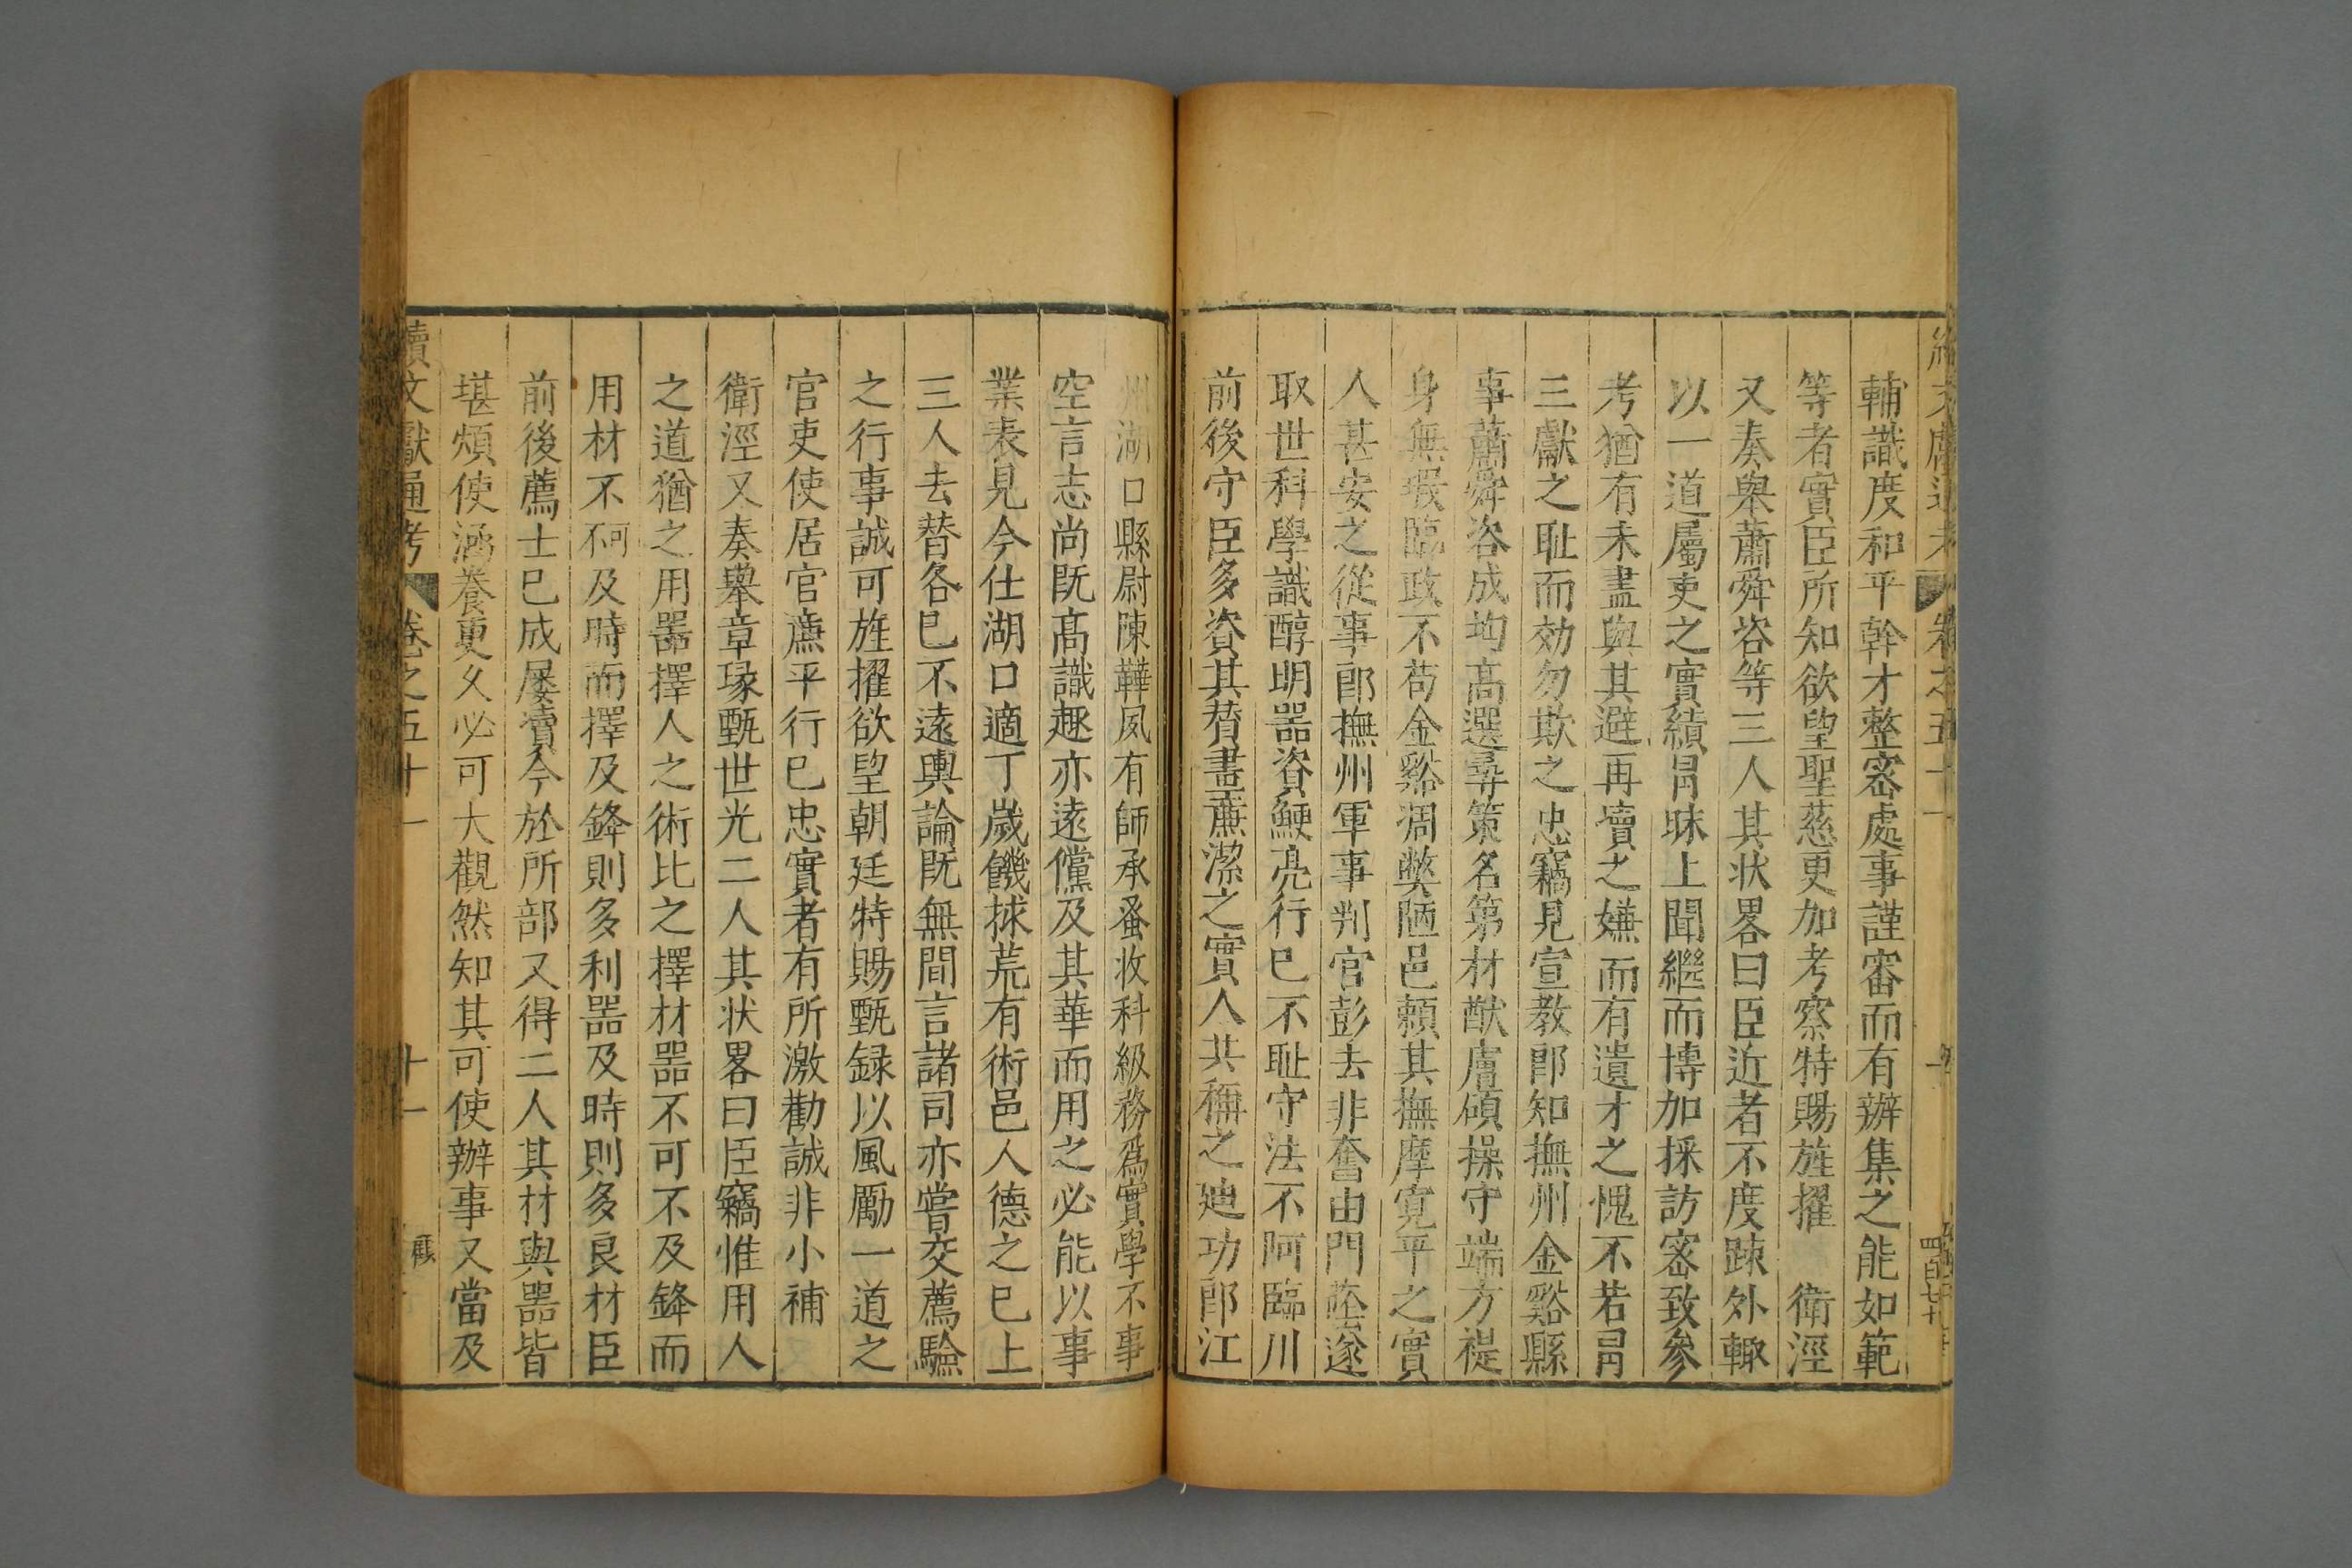 輔識度和平幹才整宻處事謹審而有辦集之能如範
等者實臣所知欲望聖慈更加考察特賜旌擢　衛涇
又奏舉蕭舜咨等三人其状畧曰臣近者不度踈外輙
以一道屬吏之實績冐昧上聞繼而博加採訪宻致參
考猶有未盡與其避再瀆之嫌而有遺才之愧不若冐
三獻之耻而効勿欺之忠竊見宣教郎知撫州金谿縣
事蕭舜咨成均高選㝷策名第材猷膚碩操守端方褆
身無瑕臨政不苟金谿凋獘陋邑頼其撫摩寛平之實
人甚安之從事郎撫州軍事判官彭去非奮由門蔭遂
取世科學識醇明器資鯁亮行已不耻守法不阿臨川
前後守臣多資其賛畫㢘潔之實人共稱之廸功郎江
州湖口縣尉陳韡夙有師承蚤收科級務爲實學不事
空言志尚既高識趣亦逺儻及其華而用之必能以事
業表見今仕湖口適丁歲饑捄荒有術邑人德之已上
三人去替各已不逺輿論既無間言諸司亦嘗交薦驗
之行事誠可旌擢欲望朝廷特賜甄録以風勵一道之
官吏使居官㢘平行已忠實者有所激勸誠非小補
衛涇又奏舉章琭甄世光二人其状畧曰臣竊惟用人
之道猶之用器擇人之術比之擇材器不可不及鋒而
用材不可及時而擇及鋒則多利器及時則多良材臣
前後薦士已成屢瀆今於所部又得二人其材與器皆
堪煩使涵養更久必可大觀然知其可使辦事又當及
續文獻通考　卷之五十一　十一